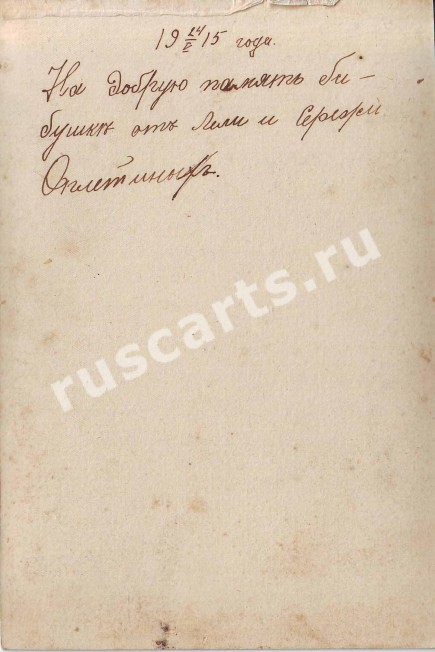 19 14/V 15 года.
На добрую память ба-
бушкѣ отъ Лели и Сережи
ruscarts.ru